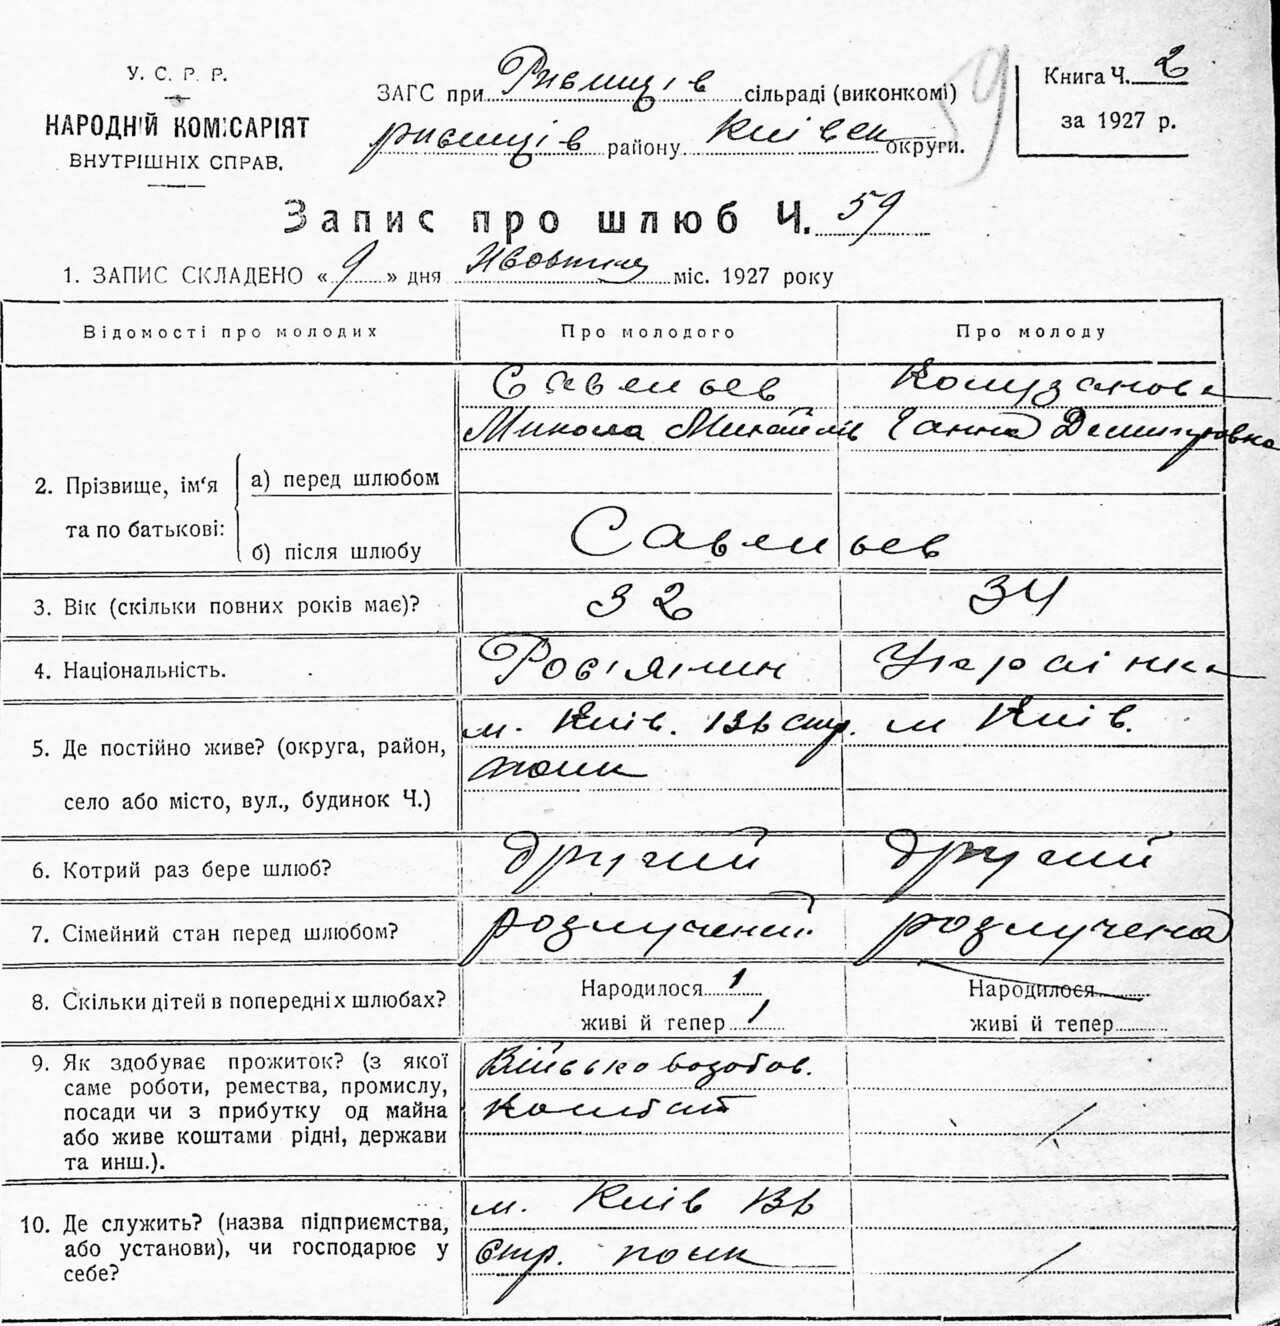 У. С. Р. Р.
НАРОДНІЙ КОМІСАРІЯТ
ВНУТРІШНІХ СПРАВ.
ЗАГС при Ржищів сільраді (виконкомі)
ржищів району Київськ округи.
59
Книга Ч. 2
за 1927 р.
Запис про шлюб Ч. 59
1. ЗАПИС СКЛАДЕНО « 9 » дня Жовтня міс. 1927 року
Відомості про молодих Про молодого Про молоду
2. Прізвище, ім'я та по батькові:
а) перед шлюбом
Савельев
Микола Михайлів
Ганна Демитровна
б) після шлюбу
Савельев
3. Вік (скільки повних років має)? 32 34
4. Національність. Росіянин Українка
5. Де постійно живе? (округа, район,
село або місто, вул., будинок Ч.)
м. Київ. 136 стр. м Київ.
полк
6. Котрий раз бере шлюб? другий другий
7. Сімейний стан перед шлюбом? розлучений розлучена
8. Скільки дітей в попередніх шлюбах?
Народилося 1 Народилося
живі й тепер 1 живі й тепер
9. Як здобуває прожиток? (з якої
саме роботи, ремества, промислу,
посади чи з прибутку од майна
або живе коштами рідні, держави
та инш.).
Військовозобов.
Комбат
10. Де служить? (назва підприємства,
або установи), чи господарює у
себе?
м. Київ 136
стр. полк